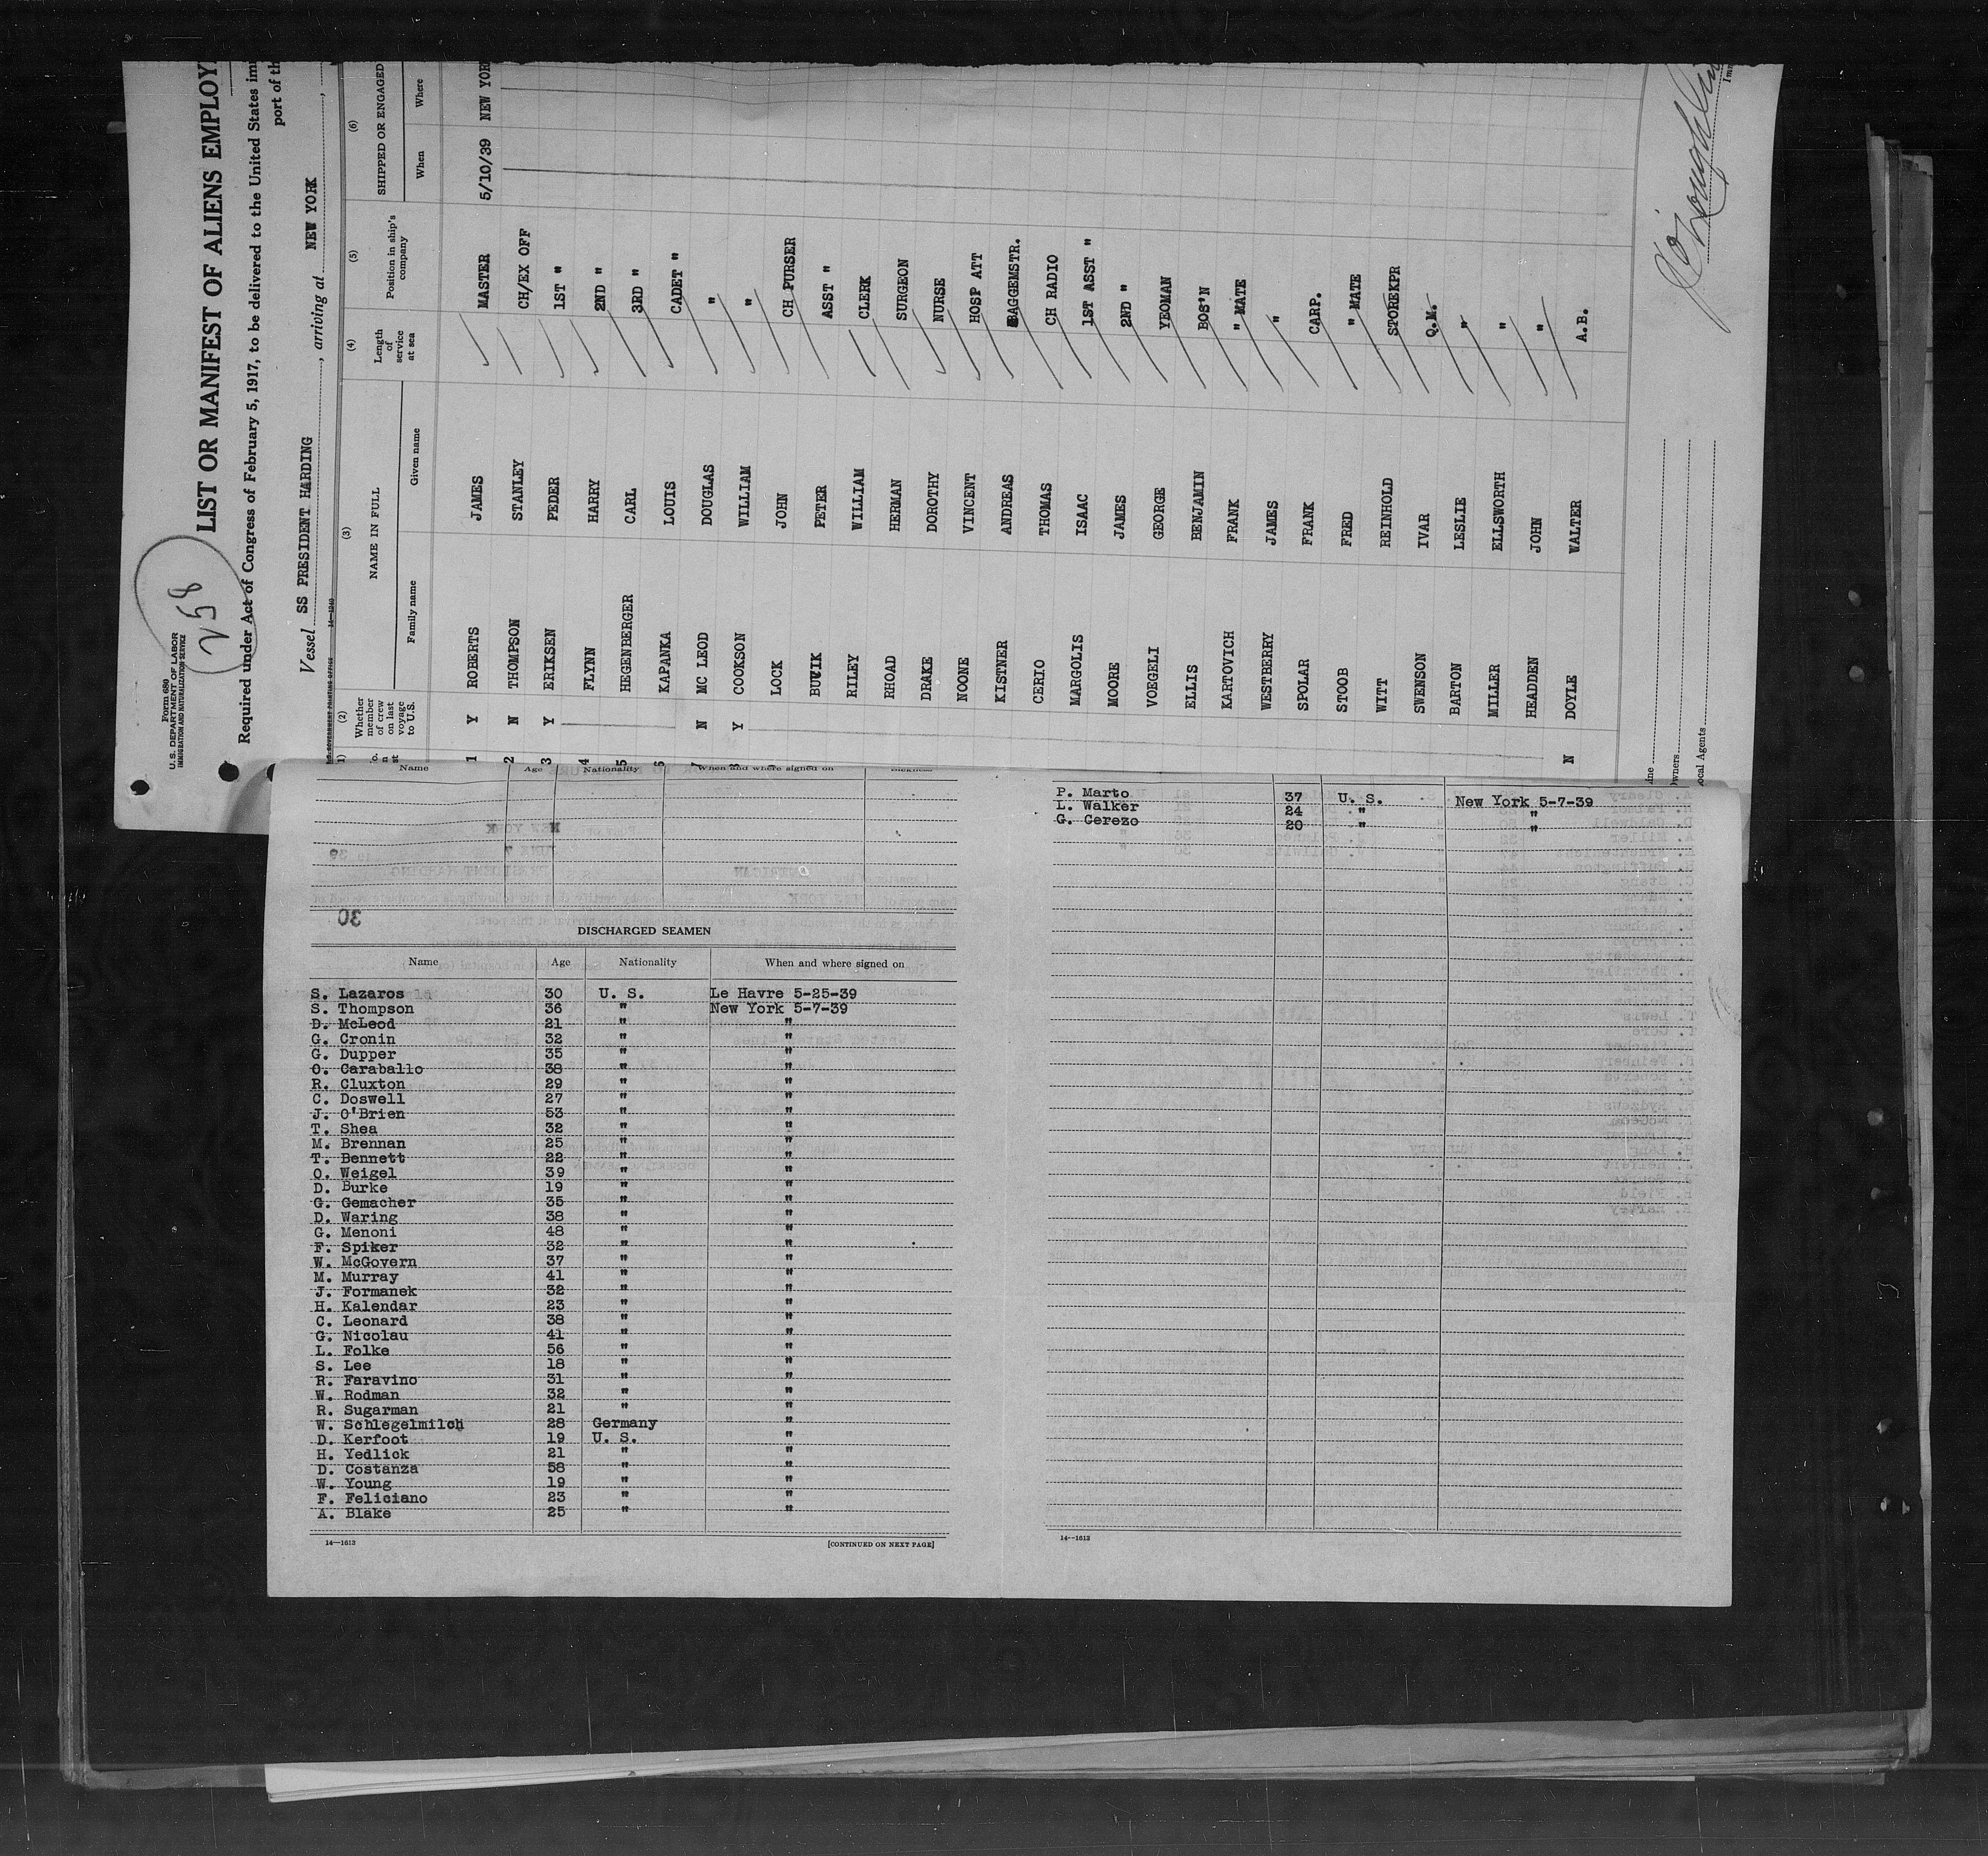 Form 680
U.S. DEPARTMENT OF LABOR
IMMIGRATION AND NATURALIZATION SERVICE
258
LIST OR MANIFEST OF ALIENS EMPLOY
Required under Act of Congress of February 5, 1917, to be delivered to the United States
port of th
Vessel SS PRESIDENT HARDING, arriving at NEW YORK,
(2) (3) (4) (5) (6)
Whether member of crew on last voyage to U.S. NAME IN FULL Length of service at sea Position in ship's company SHIPPED OR ENGAGED
Family name Given name When Where
1 Y ROBERTS JAMES MASTER 5/10/39 NEW YOR
2 N THOMPSON STANLEY CH/EX OFF
3 Y ERIKSEN PEDER 1ST "
4 FLYNN HARRY 2ND "
5 HEGENBERGER CARL 3RD "
6 KAPANKA LOUIS CADET "
7 N MC LEOD DOUGLAS "
8 Y COOKSON WILLIAM "
LOCK JOHN CH PURSER
BUWIK PETER ASST "
RILEY WILLIAM CLERK
RHOAD HERMAN SURGEON
DRAKE DOROTHY NURSE
NOONE VINCENT HOSP ATT
KISTNER ANDREAS BAGGEMSTR.
CERIO THOMAS CH RADIO
MARGOLIS ISAAC 1ST ASST "
MOORE JAMES 2ND "
VOEGELI GEORGE YEOMAN
ELLIS BENJAMIN BOS'N
KARTOVICH FRANK " MATE
WESTBERRY JAMES "
SPOLAR FRANK CARP.
STOOB FRED " MATE
WITT REINHOLD STOREKPR
SWENSON IVAR Q.M.
BARTON LESLIE "
MILLER ELLSWORTH "
HEADDEN JOHN "
N DOYLE WALTER A.B.
Name Age Nationality When and where signed on Sickness
DISCHARGED SEAMEN
Name Age Nationality When and where signed on
S. Lazaros 30 U. S. Le Havre 5-25-39
S. Thompson 36 " New York 5-7-39
D. McLeod 21 " "
G. Cronin 32 " "
G. Dupper 35 " "
O. Caraballo 38 " "
R. Cluxton 29 " "
C. Doswell 27 " "
J. O'Brien 53 " "
T. Shea 32 " "
M. Brennan 25 " "
T. Bennett 22 " "
O. Weigel 39 " "
D. Burke 19 " "
G. Gemacher 35 " "
D. Waring 38 " "
G. Menoni 48 " "
F. Spiker 32 " "
W. McGovern 37 " "
M. Murray 41 " "
J. Formanek 32 " "
H. Kalendar 23 " "
C. Leonard 38 " "
G. Nicolau 41 " "
L. Folke 56 " "
S. Lee 18 " "
R. Faravino 31 " "
W. Rodman 32 " "
R. Sugarman 21 " "
W. Schlegelmilch 28 Germany "
D. Kerfoot 19 U. S. "
H. Yedlick 21 " "
D. Costanza 58 " "
W. Young 19 " "
F. Feliciano 23 " "
A. Blake 25 " "
14—1613 [CONTINUED ON NEXT PAGE]
P. Marto 37 U. S. New York 5-7-39
L. Walker 24 " "
G. Cerezo 20 " "
14—1613